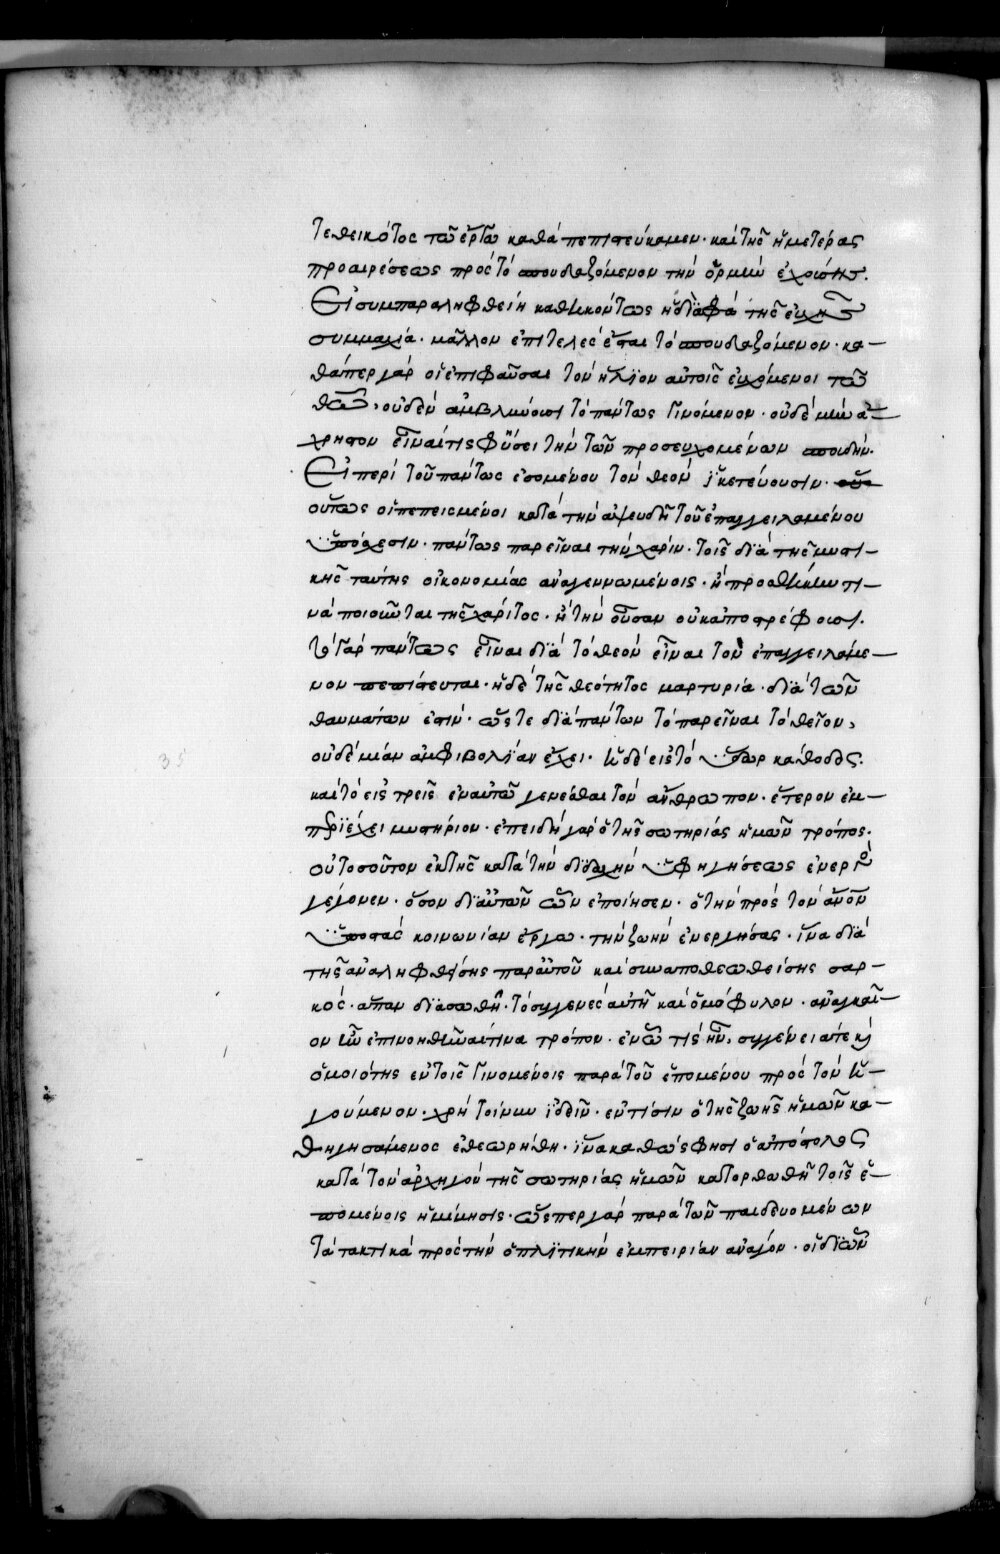 τεθεικότος τῶ ἔργω καθὰ πεπιστεύκαμεν · καὶ τῆς ἡμετέρας
προαιρέσεως πρὸς τὸ σπουδαζόμενον τὴν ὁρμὴν ἐχούσης.
Εἰ συμπαραληφθείη καθηκόντως ἡ διὰ τῆς εὐχῆς
συμμαχία · μᾶλλον ἐπιτελὲς ἔσται τὸ σπουδαζόμενον · κα-
θάπερ γὰρ οἱ ἐπιφαῦσαι τὸν ἥλϊον αὐτοῖς εὐχόμενοι τῶ
θεῶ, οὐδὲν ἀμβλύνουσι τὸ πάντως γινόμενον · οὐδὲ μὴν ἄ-
χρηστον εἶναί τις φύσει τὴν τῶν προσευχομένων σπουδήν.
Εἰ περὶ τοῦ πάντως ἐσομένου τὸν θεὸν ἱκετεύουσιν ·
οὕτως οἱ πεπεισμένοι κατὰ τὴν ἀψευδῆ τοῦ ἐπαγγειλαμένου
ὑπόσχεσιν · πάντως παρεῖναι τὴν χάριν · τοῖς διὰ τῆς μυστι-
κῆς ταύτης οἰκονομίας ἀναγεννωμένοις · ἢ προσθήκην τι-
νὰ ποιοῦνται τῆς χάριτος · ἢ τὴν οὖσαν οὐκ ἀποστρέφουσι.
τὸ γὰρ πάντως εἶναι διὰ τὸ θεὸν εἶναι τὸν ἐπαγγειλάμε-
νον πεπίστευται · ἡ δὲ τῆς θεότητος μαρτυρία · διὰ τῶν
θαυμάτων ἐστίν · ὥστε διὰ πάντων τὸ παρεῖναι τὸ θεῖον,
οὐδεμίαν ἀμφιβολίαν ἔχει · ἡ δὲ εἰς τὸ ὕδωρ κάθοδος.
καὶ τὸ εἰς τρεῖς ἐν αὐτῶ γενέσθαι τὸν ἄνθρωπον · ἕτερον ἐμ-
περϊέχει μυστήριον · ἐπειδὴ γὰρ ὁ τῆς σωτηρίας ἡμῶν τρόπος.
οὐ τοσοῦτον ἐκ τῆς κατὰ τὴν διδαχὴν ὑφηγήσεως ἐνεργὸς
γέγονεν · ὅσον δι αὐτῶν ὧν ἐποίησεν · ὁ τὴν πρὸς τὸν ἄνον
ὑποστὰς κοινωνίαν ἔργω · τὴν ζωὴν ἐνεργήσας · ἵνα διὰ
τῆς ἀναληφθείσης παρ αὐτοῦ καὶ συναποθεωθείσης σαρ-
κός · ἅπαν διασωθῆ · τὸ συγγενὲς αὐτῆ καὶ ὁμόφυλον · ἀναγκαῖ-
ον ἦν ἐπινοηθῆναί τινα τρόπον · ἐν ὧ τὶς ἦν, συγγένειά τε κὶ
ὁμοιότης ἐν τοῖς γινομένοις παρὰ τοῦ ἑπομένου πρὸς τὸν ἡ-
γούμενον · χρὴ τοίνυν ἰδεῖν · ἐν τίσιν ὁ τῆς ζωῆς ἡμῶν κα-
θηγησάμενος ἐθεωρήθη · ἵνα καθώς φησι ὁ ἀπόστολος
κατὰ τὸν ἀρχηγὸν τῆς σωτηρίας ἡμῶν κατορθωθῆ τοῖς ἑ-
πομένοις ἡ μίμησις · ὥσπερ γὰρ παρὰ τῶν παιδευομένων
τὰ τακτικὰ πρὸς τὴν ὁπλϊτικὴν ἐμπειρίαν ἀνάγον · οἱ δι ὧν